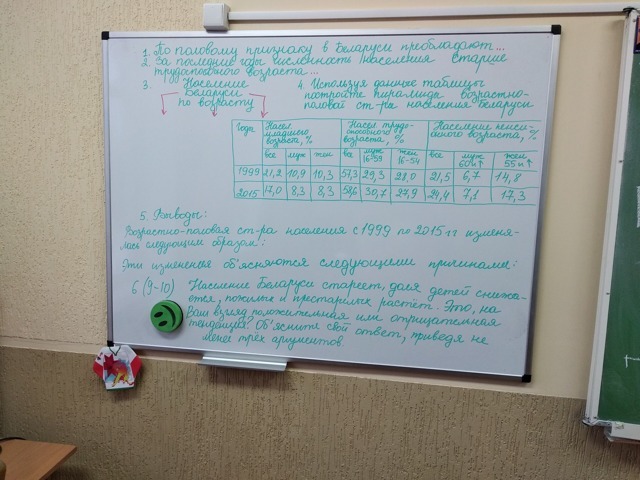 1. По половому признаку в Беларуси преобладают...
2. За последние годы численность населения старше
трудоспособного возраста...
3. Население
Беларуси
по возрасту
4. Используя данные таблицы
постройте пирамиды возрастно-
половой ст-ры населения Беларуси
Года Насел. младшего возраста, % Насел. трудо-способного возраста, % Население пенси-онного возраста, %
все муж жен все муж 16-59 жен 16-54 все муж 60 и ↑ жен 55 и ↑
1999 21,2 10,9 10,3 57,3 29,3 28,0 21,5 6,7 14,8
2015 17,0 8,3 8,3 58,6 30,7 27,9 24,4 7,1 17,3
5. Выводы:
Возрастно-половая ст-ра населения с 1999 по 2015 гг изменя-
лась следующим образом:
Эти изменения объясняются следующими причинами:
6 (9-10) Население Беларуси стареет, доля детей снижа-
ется, пожилых и престарелых растёт. Это, на
Ваш взгляд положительная или отрицательная
тенденция? Объясните свой ответ, приведя не
менее трёх аргументов.